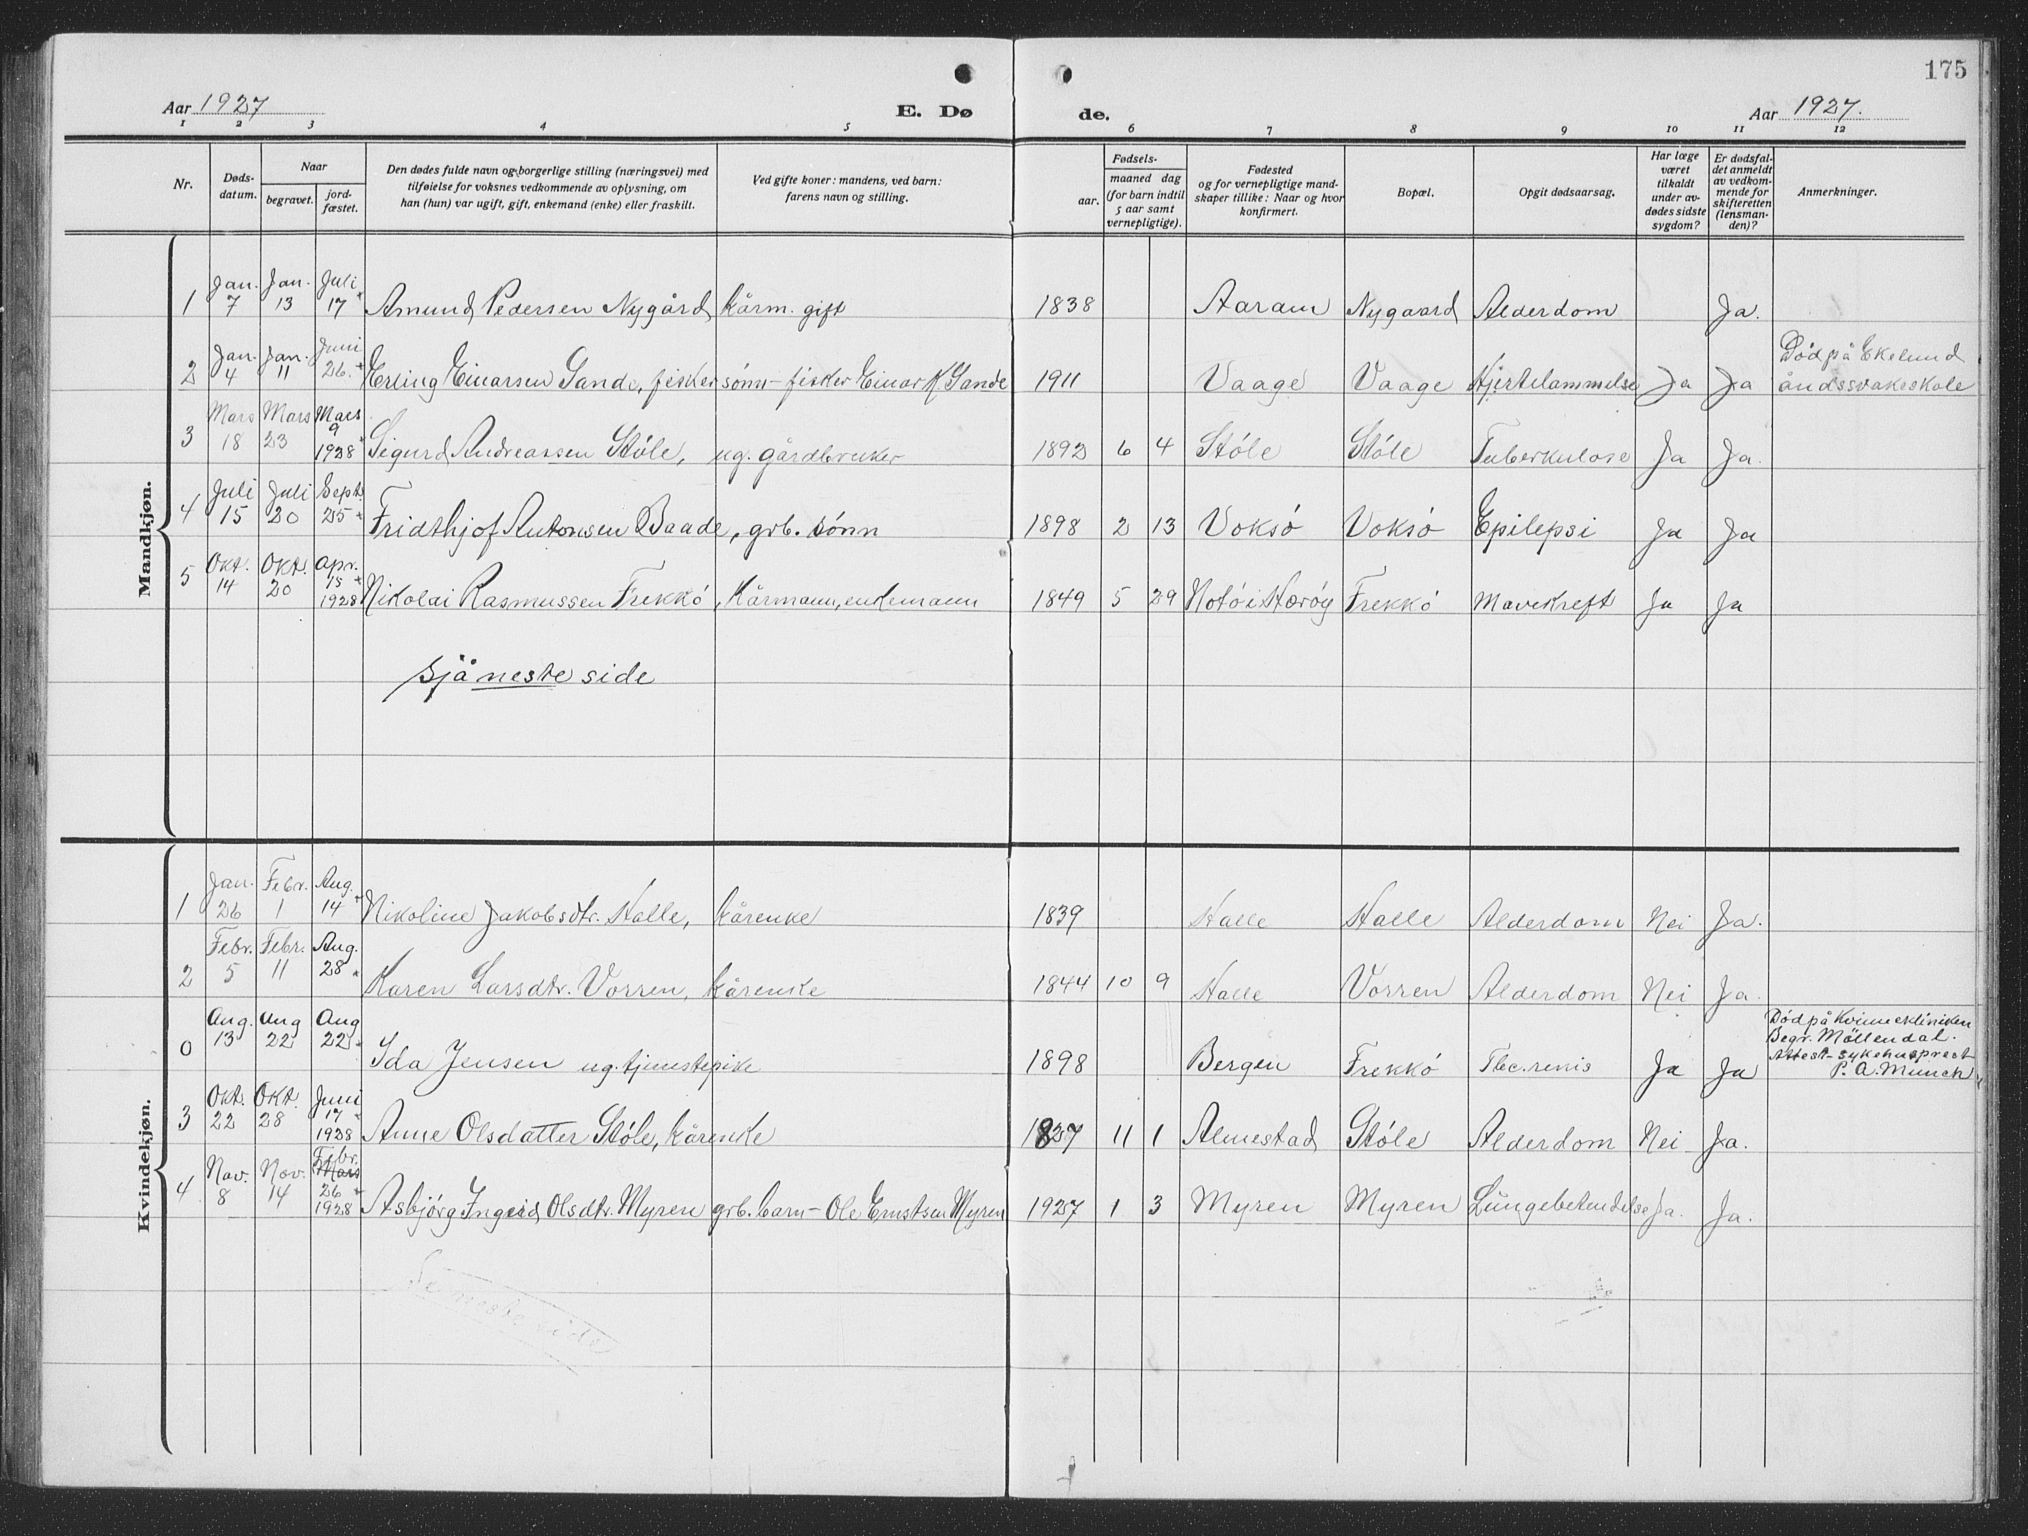 175
Aar 1927 E. Dø de. Aar 1927.
1 2 3 4 5 6 7 8 9 10 11 12
Nr. Døds-datum. Naar begravet. jord-fæstet. Den dødes fulde navn og borgerlige stilling (næringsvei) med tilføielse for voksnes vedkommende av oplysning, om han (hun) var ugift, gift, enkemand (enke) eller fraskilt. Ved gifte koner: mandens, ved barn: farens navn og stilling. aar. Fødsels- maaned dag (for barn indtil 5 aar samt vernepligtige). Fødested og for vernepligtige mandskaper tillike: Naar og hvor konfirmert. Bopæl. Opgit dødsaarsag. Har læge været tilkaldt under avdødes sidste sygdom? Er dødsfaldet anmeldt av vedkommende for skifteretten (lensmanden)? Anmerkninger.
Mandkjøn.
1 Jan. 7 Jan. 13 Juli 17 Amund Pedersen Nygård kårm. gift 1838 Aaram Nygaard Alderdom Ja.
2 Jan. 4 Jan. 11 Juni 26. Erling Einarsen Sande, fisker sønn – fisker Einar K Sande 1911 Vaage Vaage Hjertelammelse Ja Ja Død på Ekelund åndssvakeskole
3 Mars 18 Mars 23 Mars 9 1928 Sigurd Andreassen Støle, ug. gårdbruker 1892 6 4 Støle Støle Tuberkulose Ja Ja.
4 Juli 15 Juli 20 Sept. 25 Fridthjof Antonsen Baade, grb. sønn 1898 2 13 Voksø Voksø Epilepsi Ja Ja
5 Okt. 14 Okt. 20 Apr. 15 1928 Nikolai Rasmussen Frekkø, Kårmann, enkemann 1849 5 29 Notø i Herøy Frekkø Mavekreft Ja Ja
sjå neste side
Kvindekjøn.
1 Jan. 26 Febr. 1 Aug. 14 Nikoline Jakobsdtr. Halle, kårenke 1839 Halle Halle Alderdom Nei Ja.
2 Febr. 5 Febr. 11 Aug. 28 Karen Larsdtr. Vorren, kårenke 1844 10 9 Halle Vorren Alderdom Nei Ja.
0 Aug. 13 Aug 22 Aug 22 Ida Jensen ug. tjenestepike 1898 Bergen Frekkø Tbc. renis Ja Ja Død på Kvinneklinikken Begr. Møllendal. Attest – sykehusprest P. A. Munch
3 Okt. 22 Okt. 28 Juni 17 1928 Anne Olsdatter Støle, kårenke 1837 11 1 Almestad Støle Alderdom Nei Ja.
4 Nov. 8 Nov. 14 Febr. Mars 26 1928 Asbjørg Ingrid Olsdtr. Myren grb. barn – Ole Ernstsen Myren 1927 1 3 Myren Myren Lungebetendelse Ja. Ja.
neste side